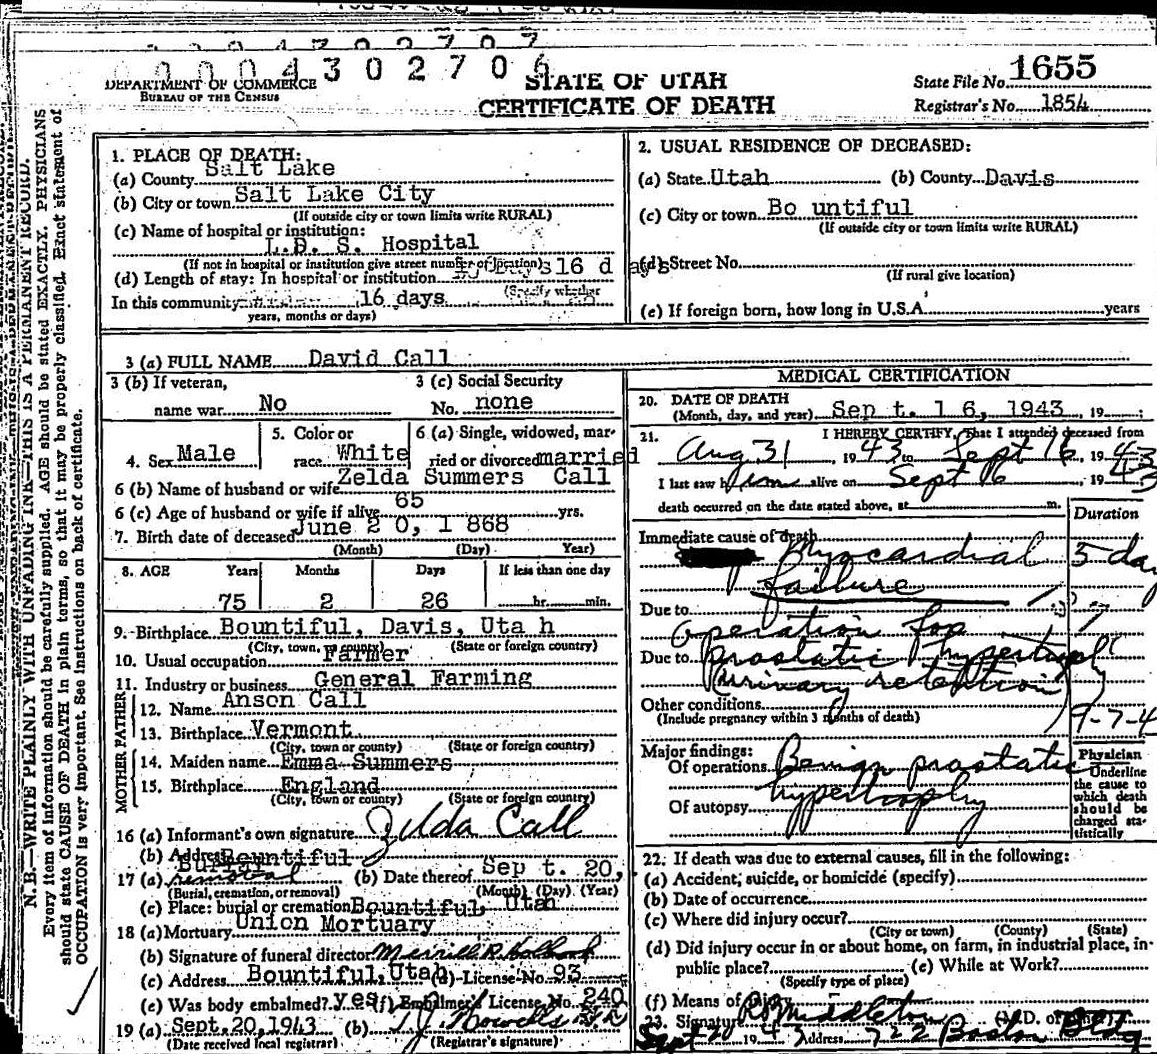 0004302706
DEPARTMENT OF COMMERCE
BUREAU OF THE CENSUS
STATE OF UTAH
CERTIFICATE OF DEATH
State File No. 1655
Registrar's No. 1854
N. B.—WRITE PLAINLY WITH UNFADING INK—THIS IS A PERMANENT RECORD.
Every item of information should be carefully supplied. AGE should be stated EXACTLY. PHYSICIANS
should state CAUSE OF DEATH in plain terms, so that it may be properly classified. Exact statement of
OCCUPATION is very important. See instructions on back of certificate.
1. PLACE OF DEATH:
(a) County Salt Lake
(b) City or town Salt Lake City
(If outside city or town limits write RURAL)
(c) Name of hospital or institution:
L.D. S. Hospital
(If not in hospital or institution give street number or location)
(d) Length of stay: In hospital or institution 16 days
(Specify whether
In this community 16 days
years, months or days)
2. USUAL RESIDENCE OF DECEASED:
(a) State Utah (b) County Davis
(c) City or town Bo untiful
(If outside city or town limits write RURAL)
(d) Street No.
(If rural give location)
(e) If foreign born, how long in U.S.A. years
3 (a) FULL NAME David Call
3 (b) If veteran, name war No
3 (c) Social Security No. none
4. Sex Male
5. Color or race White
6 (a) Single, widowed, married or divorced married
6 (b) Name of husband or wife Zelda Summers Call
6 (c) Age of husband or wife if alive 65 yrs.
7. Birth date of deceased June 2 0, 1 868
(Month) (Day) Year)
8. AGE Years Months Days If less than one day
75 2 26 hr. min.
9. Birthplace Bountiful, Davis, Uta h
(City, town, or county) (State or foreign country)
10. Usual occupation Farmer
11. Industry or business General Farming
FATHER
12. Name Anson Call
13. Birthplace Vermont
(City, town or county) (State or foreign country)
MOTHER
14. Maiden name Emma Summers
15. Birthplace England
(City, town or county) (State or foreign country)
16 (a) Informant's own signature Zelda Call
(b) Address Bountiful
17 (a) Burial removal (b) Date thereof Sep t. 20,
(Burial, cremation, or removal) (Month) (Day) (Year)
(c) Place: burial or cremation Bountiful, Utah
18 (a) Mortuary Union Mortuary
(b) Signature of funeral director Merrill R. Holbrook
(c) Address Bountiful, Utah (d) License No. 93
(e) Was body embalmed? yes (f) Embalmer's License No. 240
19 (a) Sept. 20, 1943 (b) T.J. Howells
(Date received local registrar) (Registrar's signature)
MEDICAL CERTIFICATION
20. DATE OF DEATH
(Month, day, and year) Sep t. 1 6, 1943, 19 ;
21. I HEREBY CERTIFY, That I attended deceased from
Aug 31, 1943 to Sept 16, 1943
I last saw him alive on Sept 16, 1943
death occurred on the date stated above, at m.
Duration
Immediate cause of death
Myocardial 3 day
failure
Due to
Operation for
Due to prostatic hypertrophy
Urinary retention
Other conditions
(Include pregnancy within 3 months of death)
9-7-4
Major findings:
Of operations Benign prostatic
hypertrophy
Of autopsy
Physician
Underline the cause to which death should be charged statistically
22. If death was due to external causes, fill in the following:
(a) Accident, suicide, or homicide (specify)
(b) Date of occurrence
(c) Where did injury occur?
(City or town) (County) (State)
(d) Did injury occur in or about home, on farm, in industrial place, in
public place? (e) While at Work?
(Specify type of place)
(f) Means of injury
23. Signature Middleton (M.D. or other)
Sept 20 1943 Address 722 Boston Bldg